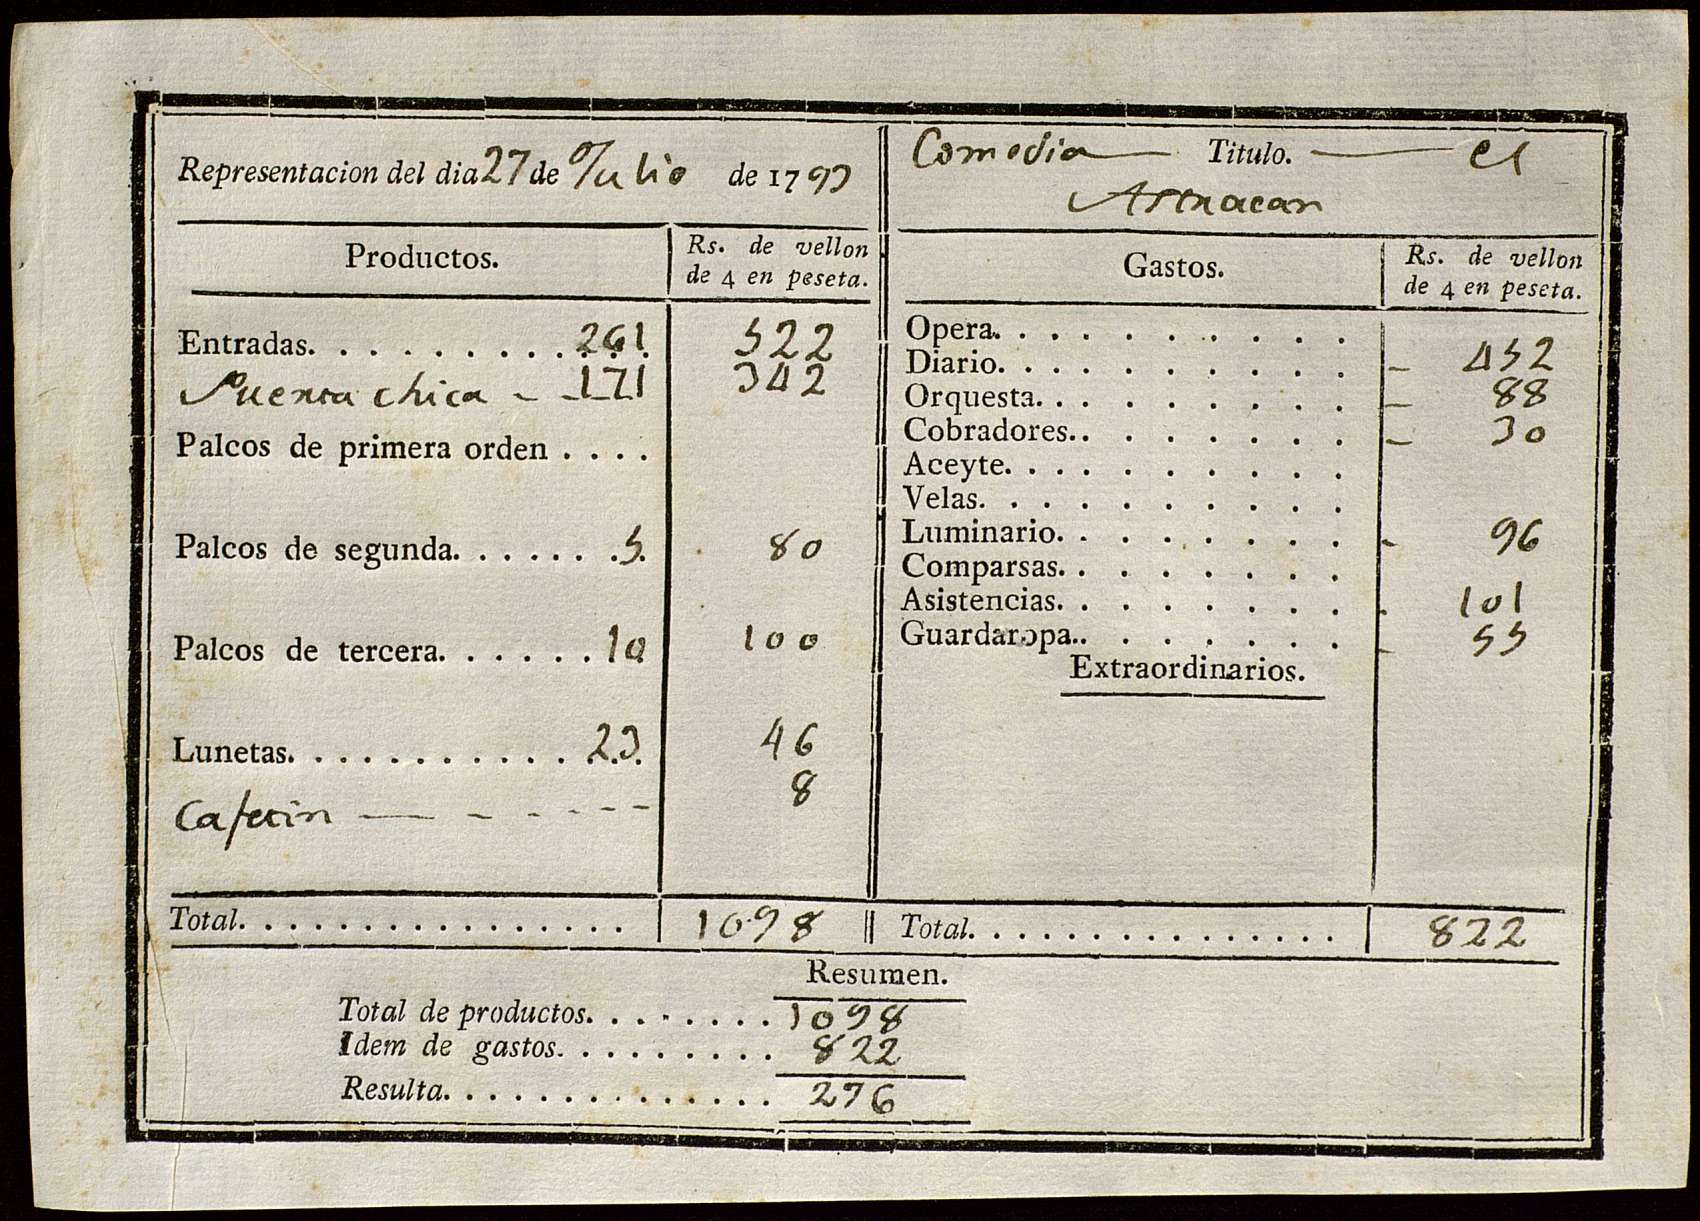 Representacion del dia 27 de Julio de 1793
Comedia Titulo. el
Astracan
Productos. Rs. de vellon
de 4 en peseta.
Entradas. 261 522
Puerta chica 171 342
Palcos de primera orden
Palcos de segunda. 5 80
Palcos de tercera. 10 100
Lunetas. 23 46
Cafetin 8
Total. 1098
Gastos. Rs. de vellon
de 4 en peseta.
Opera.
Diario. 452
Orquesta. 88
Cobradores. 30
Aceyte.
Velas.
Luminario. 96
Comparsas.
Asistencias. 101
Guardaropa. 55
Extraordinarios.
Total. 822
Resumen.
Total de productos. 1098
Idem de gastos. 822
Resulta. 276